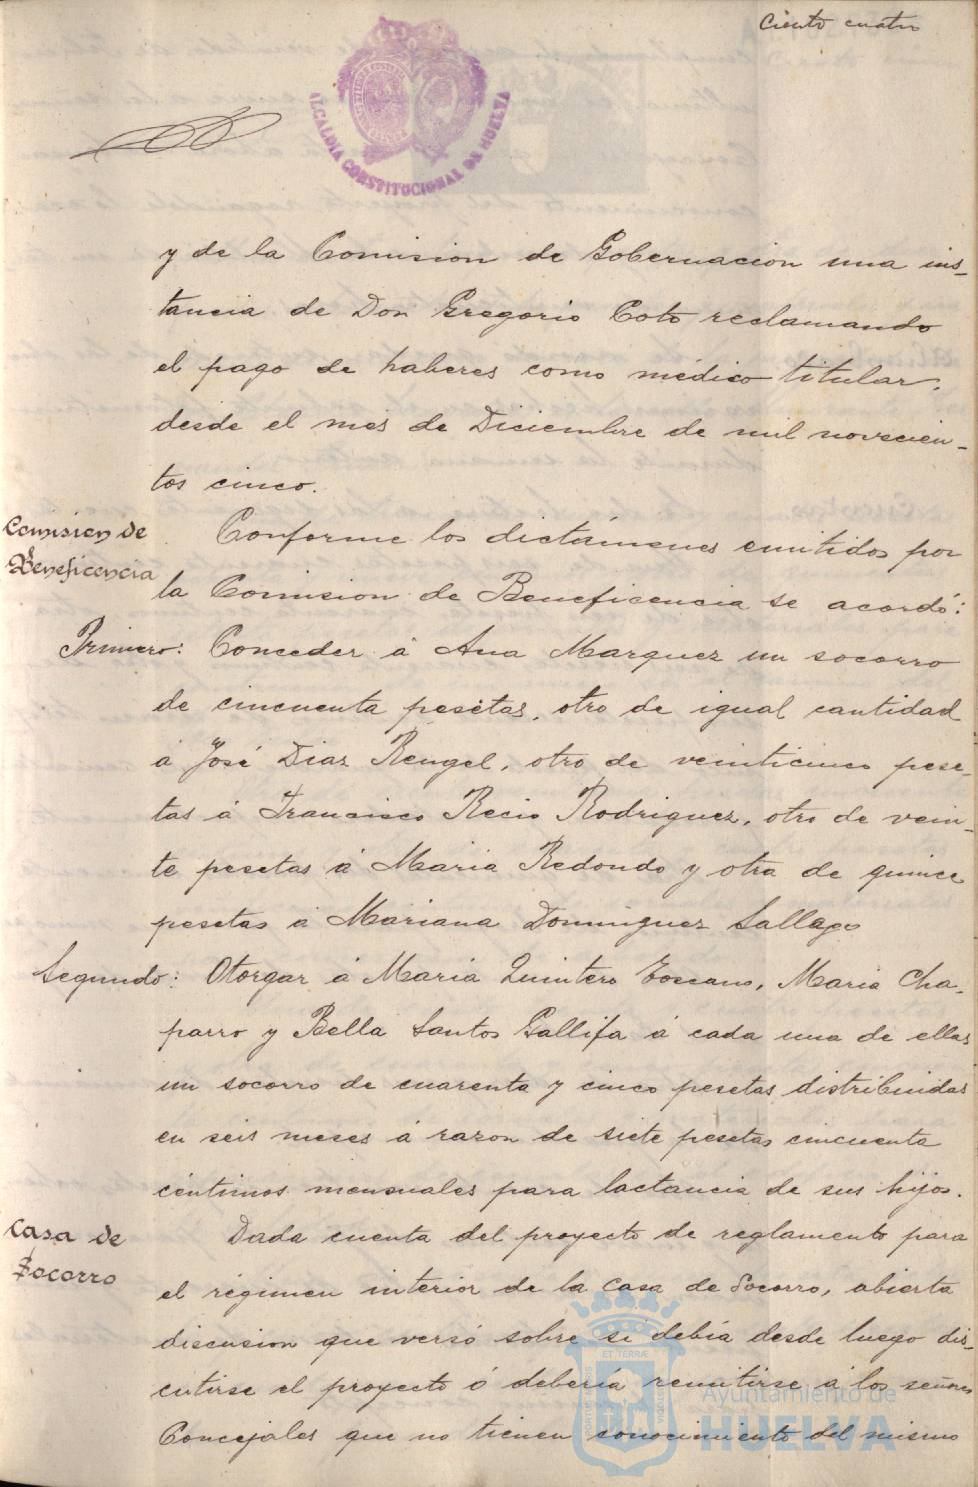 Ciento cuatro
ALCALDIA CONSTITUCIONAL DE HUELVA
y de la Comision de Gobernacion una ins-
tancia de Don Gregorio Coto reclamando
el pago de haberes como médico titular,
desde el mes de Diciembre de mil novecien-
tos cinco.
Comision de
Beneficencia
Conforme los dictámenes emitidos por
la Comision de Beneficencia se acordó:
Primero: Conceder á Ana Marquez un socorro
de cincuenta pesetas, otro de igual cantidad
á José Diaz Rengel, otro de veinticinco pese-
tas á Francisco Recio Rodriguez, otro de vein-
te pesetas á Maria Redondo y otra de quince
pesetas á Mariana Dominguez Sallago
Segundo: Otorgar á Maria Quintero Toscano, Maria Cha-
parro y Bella Santos Gallifa á cada una de ellas
un socorro de cuarenta y cinco pesetas distribuidas
en seis meses á razon de siete pesetas cincuenta
céntimos mensuales para lactancia de sus hijos.
Casa de
Socorro
Dada cuenta del proyecto de reglamento para
el régimen interior de la Casa de Socorro, abierta
discusion que versó sobre si debía desde luego dis-
cutirse el proyecto ó debería remitirse á los señores
Concejales que no tienen conocimiento del mismo
Ayuntamiento de
HUELVA